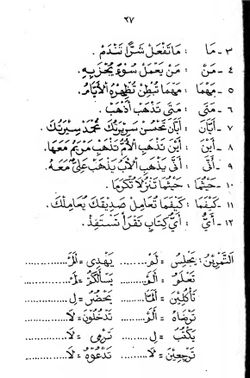 ٢٧
٣ - مَا : مَا تَفْعَلْ شَرًّا تَنْدَمْ .
٤ - مَنْ : مَنْ يَعْمَلْ سُوْءً يُجْزَ بِهِ .
٥ - مَهْمَا : مَهْمَا تُبْطِنْ تُظْهِرْهُ الْأَيَّامُ .
٦ - مَتَى : مَتَى تَذْهَبْ أَذْهَبْ .
٧ - أَيَّانَ : أَيَّانَ تَحْسُنْ سَرِيْرَتُكَ تُحْمَدْ سِيْرَتُكَ .
٨ - أَيْنَ : أَيْنَ تَذْهَبِ الْأُمُّ تَذْهَبْ مَرْيَمُ مَعَهَا .
٩ - أَنَّى : أَنَّى يَذْهَبِ الْأَبُ يَذْهَبْ عَلِيٌّ مَعَهُ .
١٠ - حَيْثُمَا : حَيْثُمَا تَنْزِلَا تُكْرَمَا .
١١ - كَيْفَمَا : كَيْفَمَا تُعَامِلْ صَدِيْقَكَ يُعَامِلْكَ .
١٢ - أَيُّ : أَيَّ كِتَابٍ تَقْرَأْ تَسْتَفِدْ .
التَّمْرِيْنُ : يَجْلِسُ = لَمْ ........ يَهْدِي = لَمْ ........
تَعْلَمُوْ = لَمْ ........ يَسْأَلُكُمْ = لَمْ ........
تَأْكُلِيْنَ = لَمَّا ........ يَحْضُرُ = لِ ........
تَرْضَاهُ = لَمْ ........ تَدْخُلُوْنَ = لَا ........
يَكْتُبُ = لِ ........ تَرْمِي = لَا ........
تَرْجِعِيْنَ = لَا ........ تَدْعُوْهُ = لَا ........